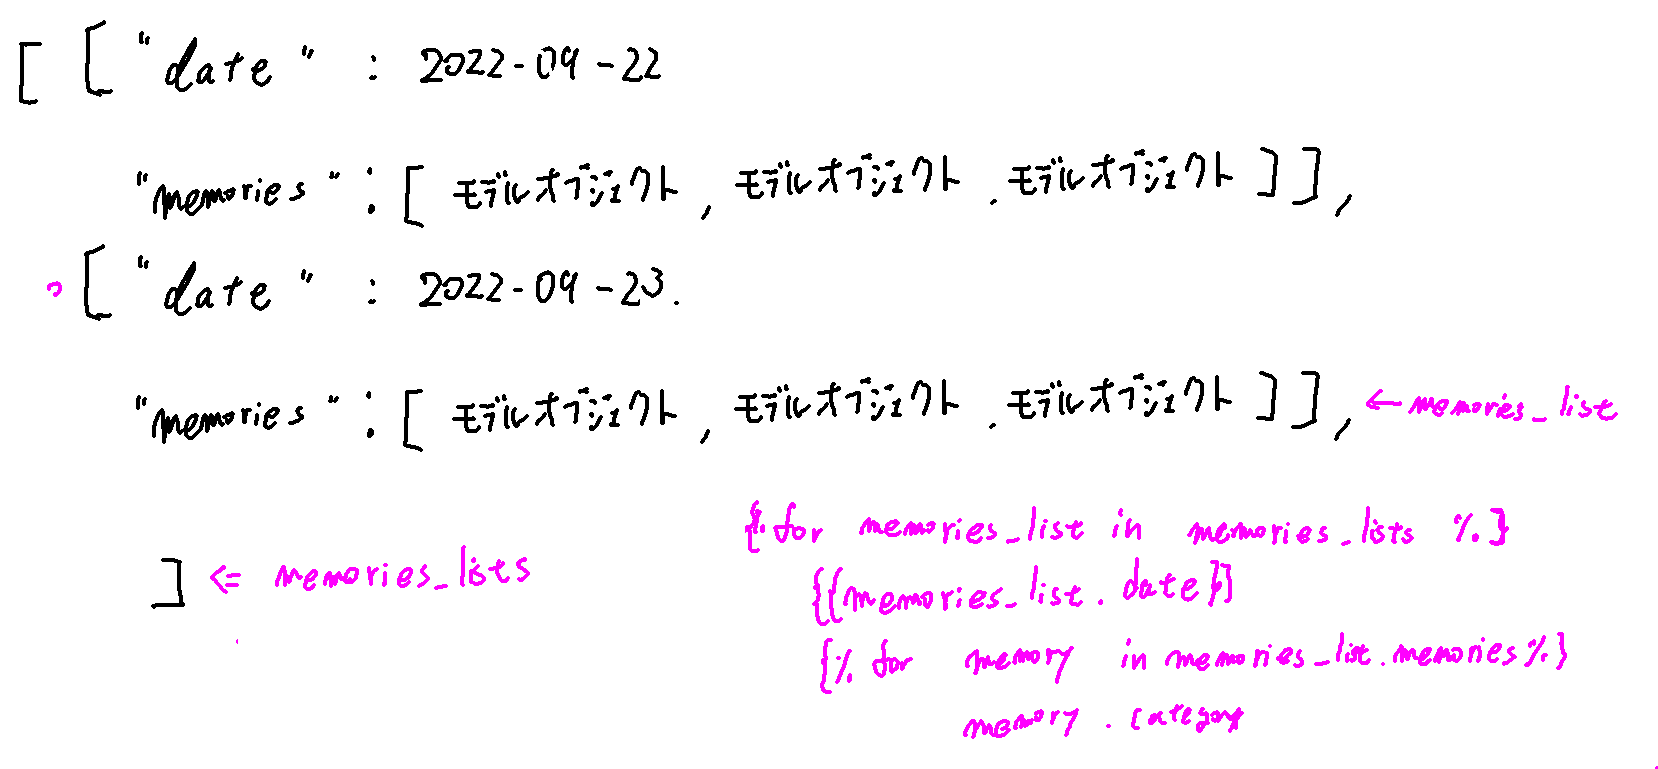 [ [ "date" : 2022-09-22
"memories" : [ モデルオブジェクト, モデルオブジェクト. モデルオブジェクト ] ],
[ "date" : 2022-09-23.
"memories" : [ モデルオブジェクト, モデルオブジェクト. モデルオブジェクト ] ], ← memories_list
] ⇐ memories_lists
{% for memories_list in memories_lists %}
{{memories_list.date}}
{% for memory in memories_list.memories %}
memory.category